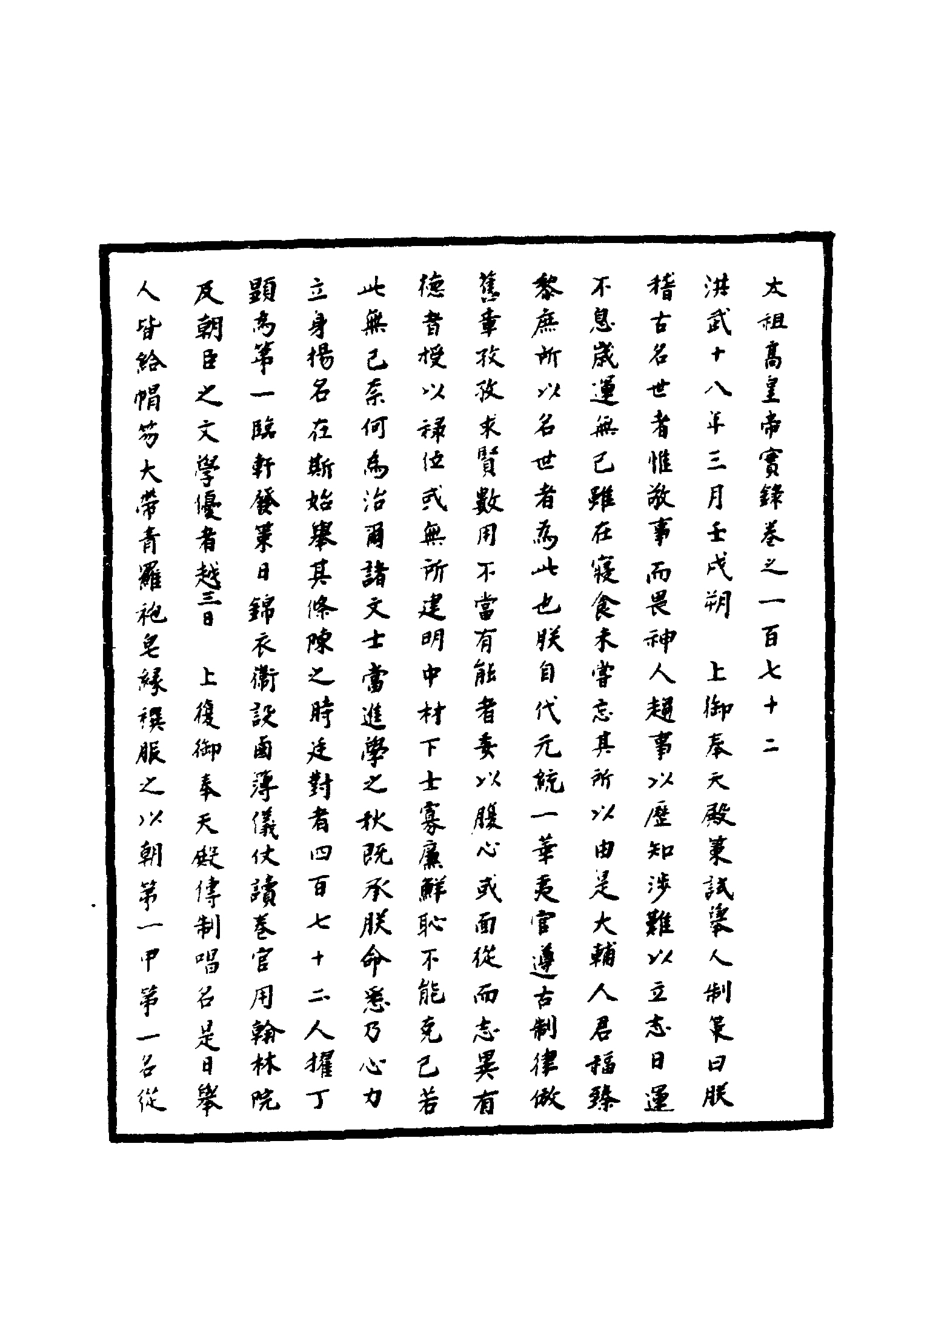 太祖高皇帝實錄卷之一百七十二
洪武十八年三月壬戌朔　上御奉天殿策試舉人制策曰朕
稽古名世者惟敬事而畏神人趨事以歷知涉難以立志日運
不息歲運無已雖在寢食未嘗忘其所以由是大輔人君福臻
黎庶所以名世者為此也朕自代元統一華夷官遵古制律倣
舊章孜孜求賢數用不當有能者委以腹心或面從而志異有
德者授以祿位或無所建明中材下士寡廉鮮恥不能克己若
此無已奈何為治爾諸文士當進學之秋既承朕命悉乃心力
立身揚名在斯始舉其條陳之時廷對者四百七十二人擢丁
顯為第一臨軒發策日錦衣衛設鹵薄儀仗讀卷官用翰林院
及朝臣之文學優者越三日　上復御奉天殿傳制唱名是日舉
人皆給帽笏大帶青羅袍皂緣襈服之以朝第一甲第一名從